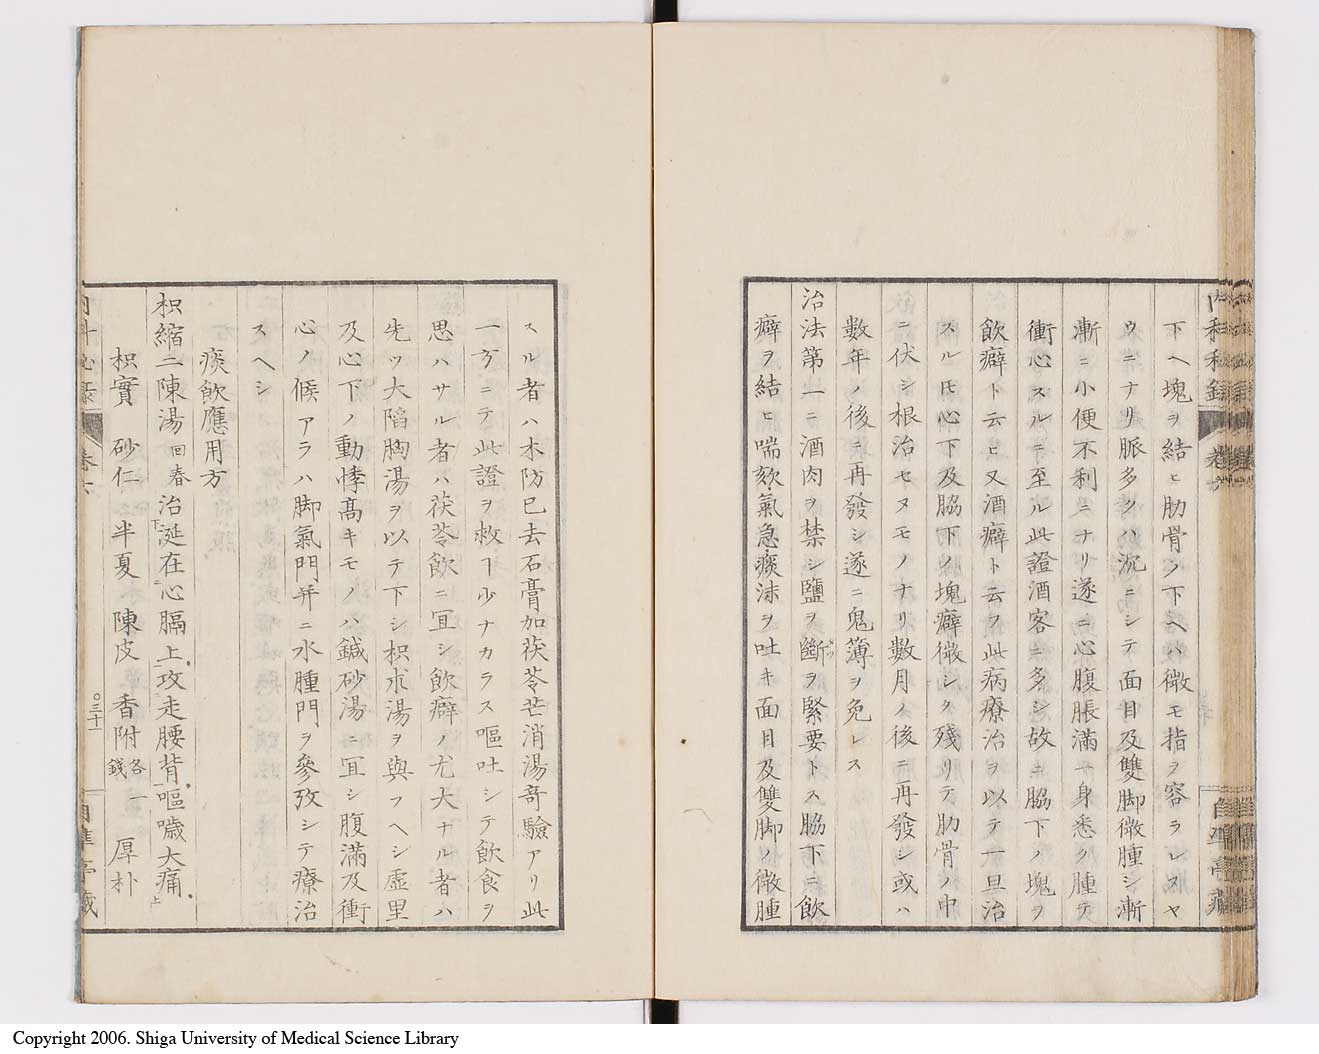 内科秘録 卷六
下ヘ塊ヲ結ヒ肋骨ノ下ヘハ微モ指ヲ容ラレスヤ
ウニナリ脈多クハ沉ニシテ面目及雙脚微腫シ漸
漸ニ小便不利ニナリ遂ニ心腹脹滿一身悉ク腫テ
衝心スルニ至ル此證酒客ニ多シ故ニ脇下ノ塊ヲ
飲癖ト云ヒ又酒癖ト云フ此病療治ヲ以テ一旦治
スルㇳモ心下及脇下ノ塊癖微シク殘リテ肋骨ノ中
ニ伏シ根治セヌモノナリ數月ノ後ニ再發シ或ハ
數年ノ後ニ再發シ遂ニ鬼簿ヲ免レス
治法第一ニ酒肉ヲ禁シ鹽ヲ斷ヲ緊要トス脇下ニ飲
癖ヲ結ヒ喘欬氣急痰沫ヲ吐キ面目及雙脚ノ微腫
スル者ハ木防已去石膏加茯苓芒消湯奇驗アリ此
一方ニテ此證ヲ救フ少ナカラス嘔吐シテ飲食ヲ
思ハサル者ハ茯苓飲ニ宜シ飲癖ノ尤大ナル者ハ
先ツ大陷胸湯ヲ以テ下シ枳朮湯ヲ與フヘシ虛里
及心下ノ動悸高キモノハ鍼砂湯ニ宜シ腹滿及衝
心ノ候アラハ脚氣門并ニ水腫門ヲ參攷シテ療治
スヘシ
痰飲應用方
枳縮二陳湯 回春 治涎在心膈上攻走腰背嘔噦大痛
枳實 砂仁 半夏 陳皮 香附 各一錢 厚朴
內科必錄 卷六 三十一 自準亭藏
Copyright 2006. Shiga University of Medical Science Library